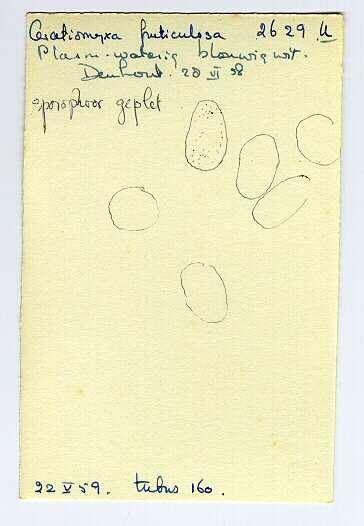 Ceratiomyxa fruticulosa 2629 U
Plasm. waterig blauwig wit.
Denhout. 28 VI 58
sporophoor geplet
22 V 59. tubus 160.